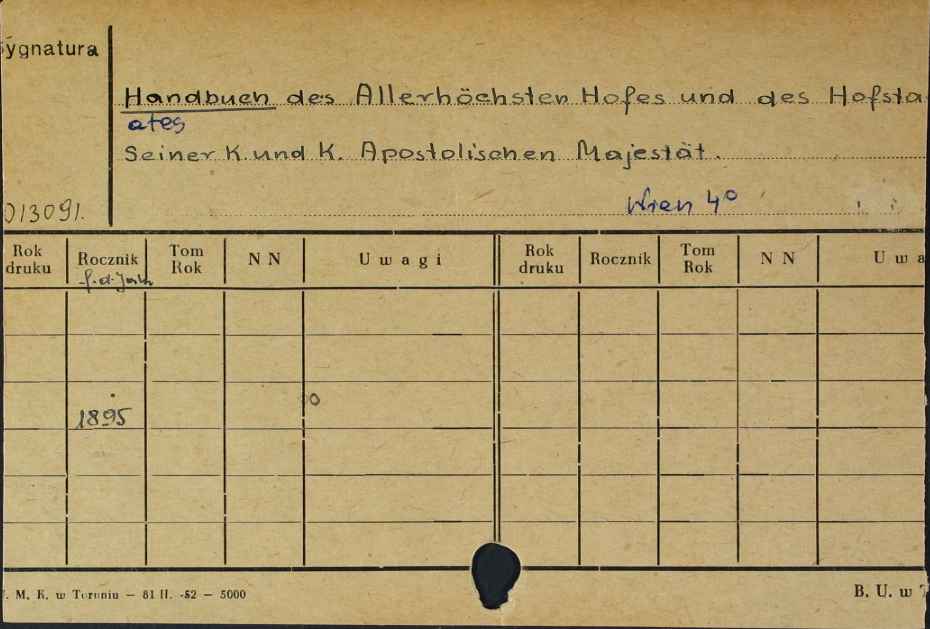 Sygnatura
Handbuch des Allerhöchsten Hofes und des Hofsta
ates
Seiner K. und K. Apostolischen Majestät.
013091.
Wien 4°
Rok druku Rocznik Tom Rok N N Uwagi Rok druku Rocznik Tom Rok N N Uwa
f. d. Jahr
1895
M. K. w Toruniu — 81 II. -52 — 5000 B. U. w T